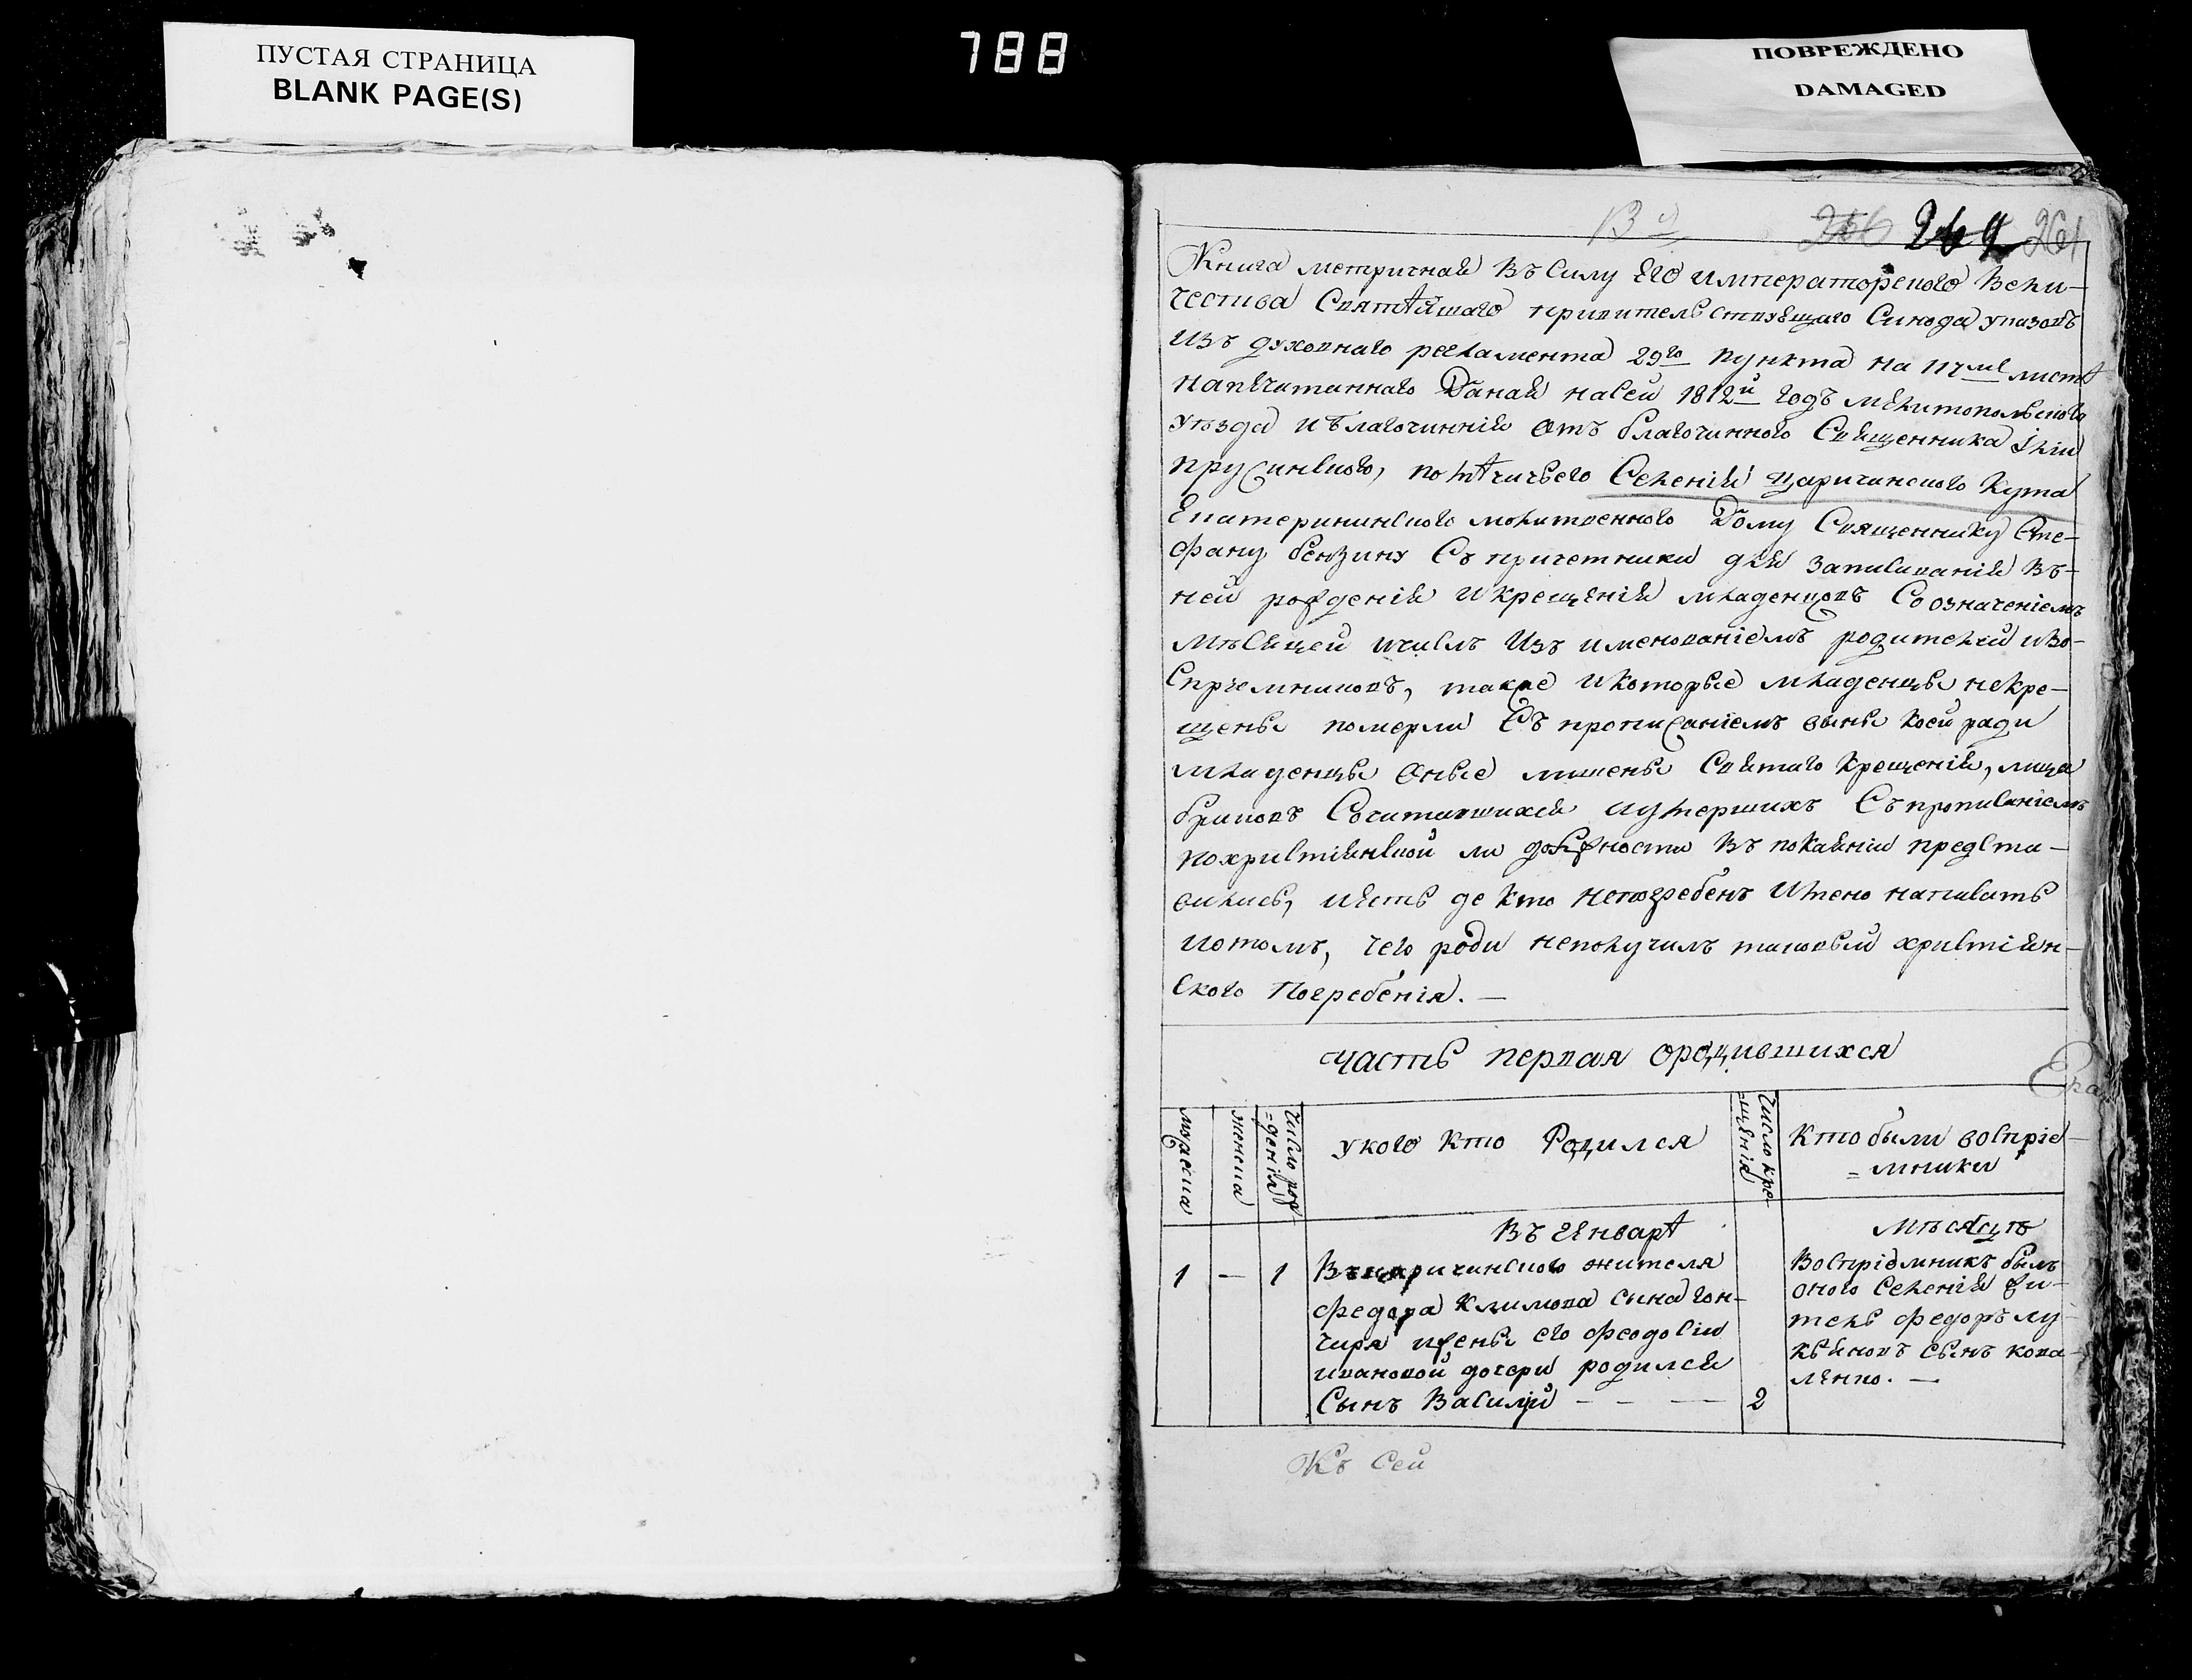 ПУСТАЯ СТРАНИЦА
BLANK PAGE(S)
788
ПОВРЕЖДЕНО
DAMAGED
266 264 261
Книга метричная Въ Силу Его императорскаго Вели-
чества Святѣйшаго правительствующаго Синода указовъ
Изъ духовнаго регламента 29го пункта на 117ми листѣ
напечатаннаго Даная насей 1812й годъ мелитопольского
уѣзда и благочиннія Отъ благочинного Священника Іліи
прусинского, по Селенія царичинского Кута
Екатерининского молитвенного Дому Священнику Сте-
фану бензину Съ причетники для записанія въ
ней рожденія И крещенія младенцовъ Со означеніемъ
мѣсяцей ичислъ Изъ именованіемъ родителей иво-
спріемниковъ, такие Икоторые младенцы некре-
щены померли Съ прописаніемъ вины коей ради
младенцы Оные лишены Святаго крещенія, лица
браковъ Сочитавшихся иумершихъ Съ прописаніемъ
похристіянской ли должности Въ покаяніи предста-
вились, иесть де кто непогребенъ Имено написать
ипотомъ, чего роди неполучилъ таковый христіян-
ского Погребенія. —
часть первая ородившихся
мужеска
женска
число рож-
=денія
укого кто Родился
число кре-
=щенія
Кто были воспріе-
=мники
Въ Генварѣ
мѣсяцѣ
1 — 1
Вцаричинского жителя
федора климова сына гон-
чаря ижены его феодосіи
ивановой дочери родился
Сынъ Василій — — — 2
Воспріэмникъ былъ
оного селенія жи-
тель федоръ лу-
кьяновъ сынъ кова-
ленко. —
Къ Сей